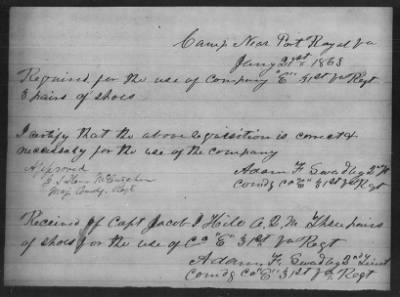 Camp Near Port Royal Va
Jany 21st 1863
Required for the use of Company "E" 31st Va Regt
3 pairs of shoes
I certify that the above requisition is correct &
necessary for the use of the company
Approved
Adam F. Gwadby 2nd
Maj Comdg Regt
Comdg Co "E" 31st Va Regt
Received of Capt Jacob I Hill A. Q. M. Three pairs
of shoes for the use of Co "E" 31st Va Regt
Adam F. Gwadby 2nd Lieut
Comdg Co "E" 31st Va Regt